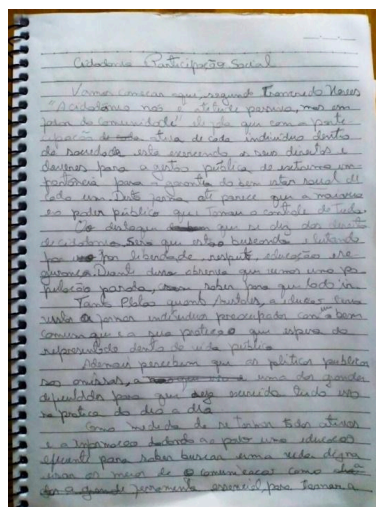 Cidadania Participação Social
Vamos começar aqui, segundo Trancredo Neves
"A cidadania não é atitude passiva, mas em
da comunidade" ele que com a parti-
cipação de ativa de cada indivíduo dentro
da sociedade está exercendo a seus direitos e
deveres para a gestão pública de extrema im-
portância para a garantia do bem estar social de
cada um. Desta forma até parece que a maioria
eo poder público que tomam a controle de tudo.
O destaque que se diz dos
de cidadania. Será que estão buscando e lutando
por liberdade, respeito, educação e se
gurança. Diante disso observa que somos uma po
pulação parada, sem saber para que lado ir.
Tanto Platão quanto Aristóteles, a educar
a formar indivíduos preocupados com um bem
comum que e a sua pratica o que espera do
representado dentro da vida pública
Ademais percebem que as políticas públicas
sao omissas, a uma das grandes
dificuldades para que seja exercida tudo isso
na pratica do dia a dia
Como medida de se tornar todos ativos
e a informação ao povo uma educação
eficiente para saber buscar uma
usar os meios de comunicação como
a grande ferramenta essencial, para tornar a